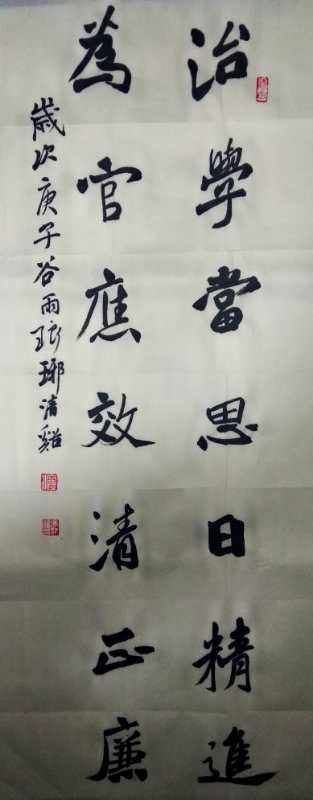 治學當思日精進
為官應效清正廉
歲次庚子谷雨琅琊清谿